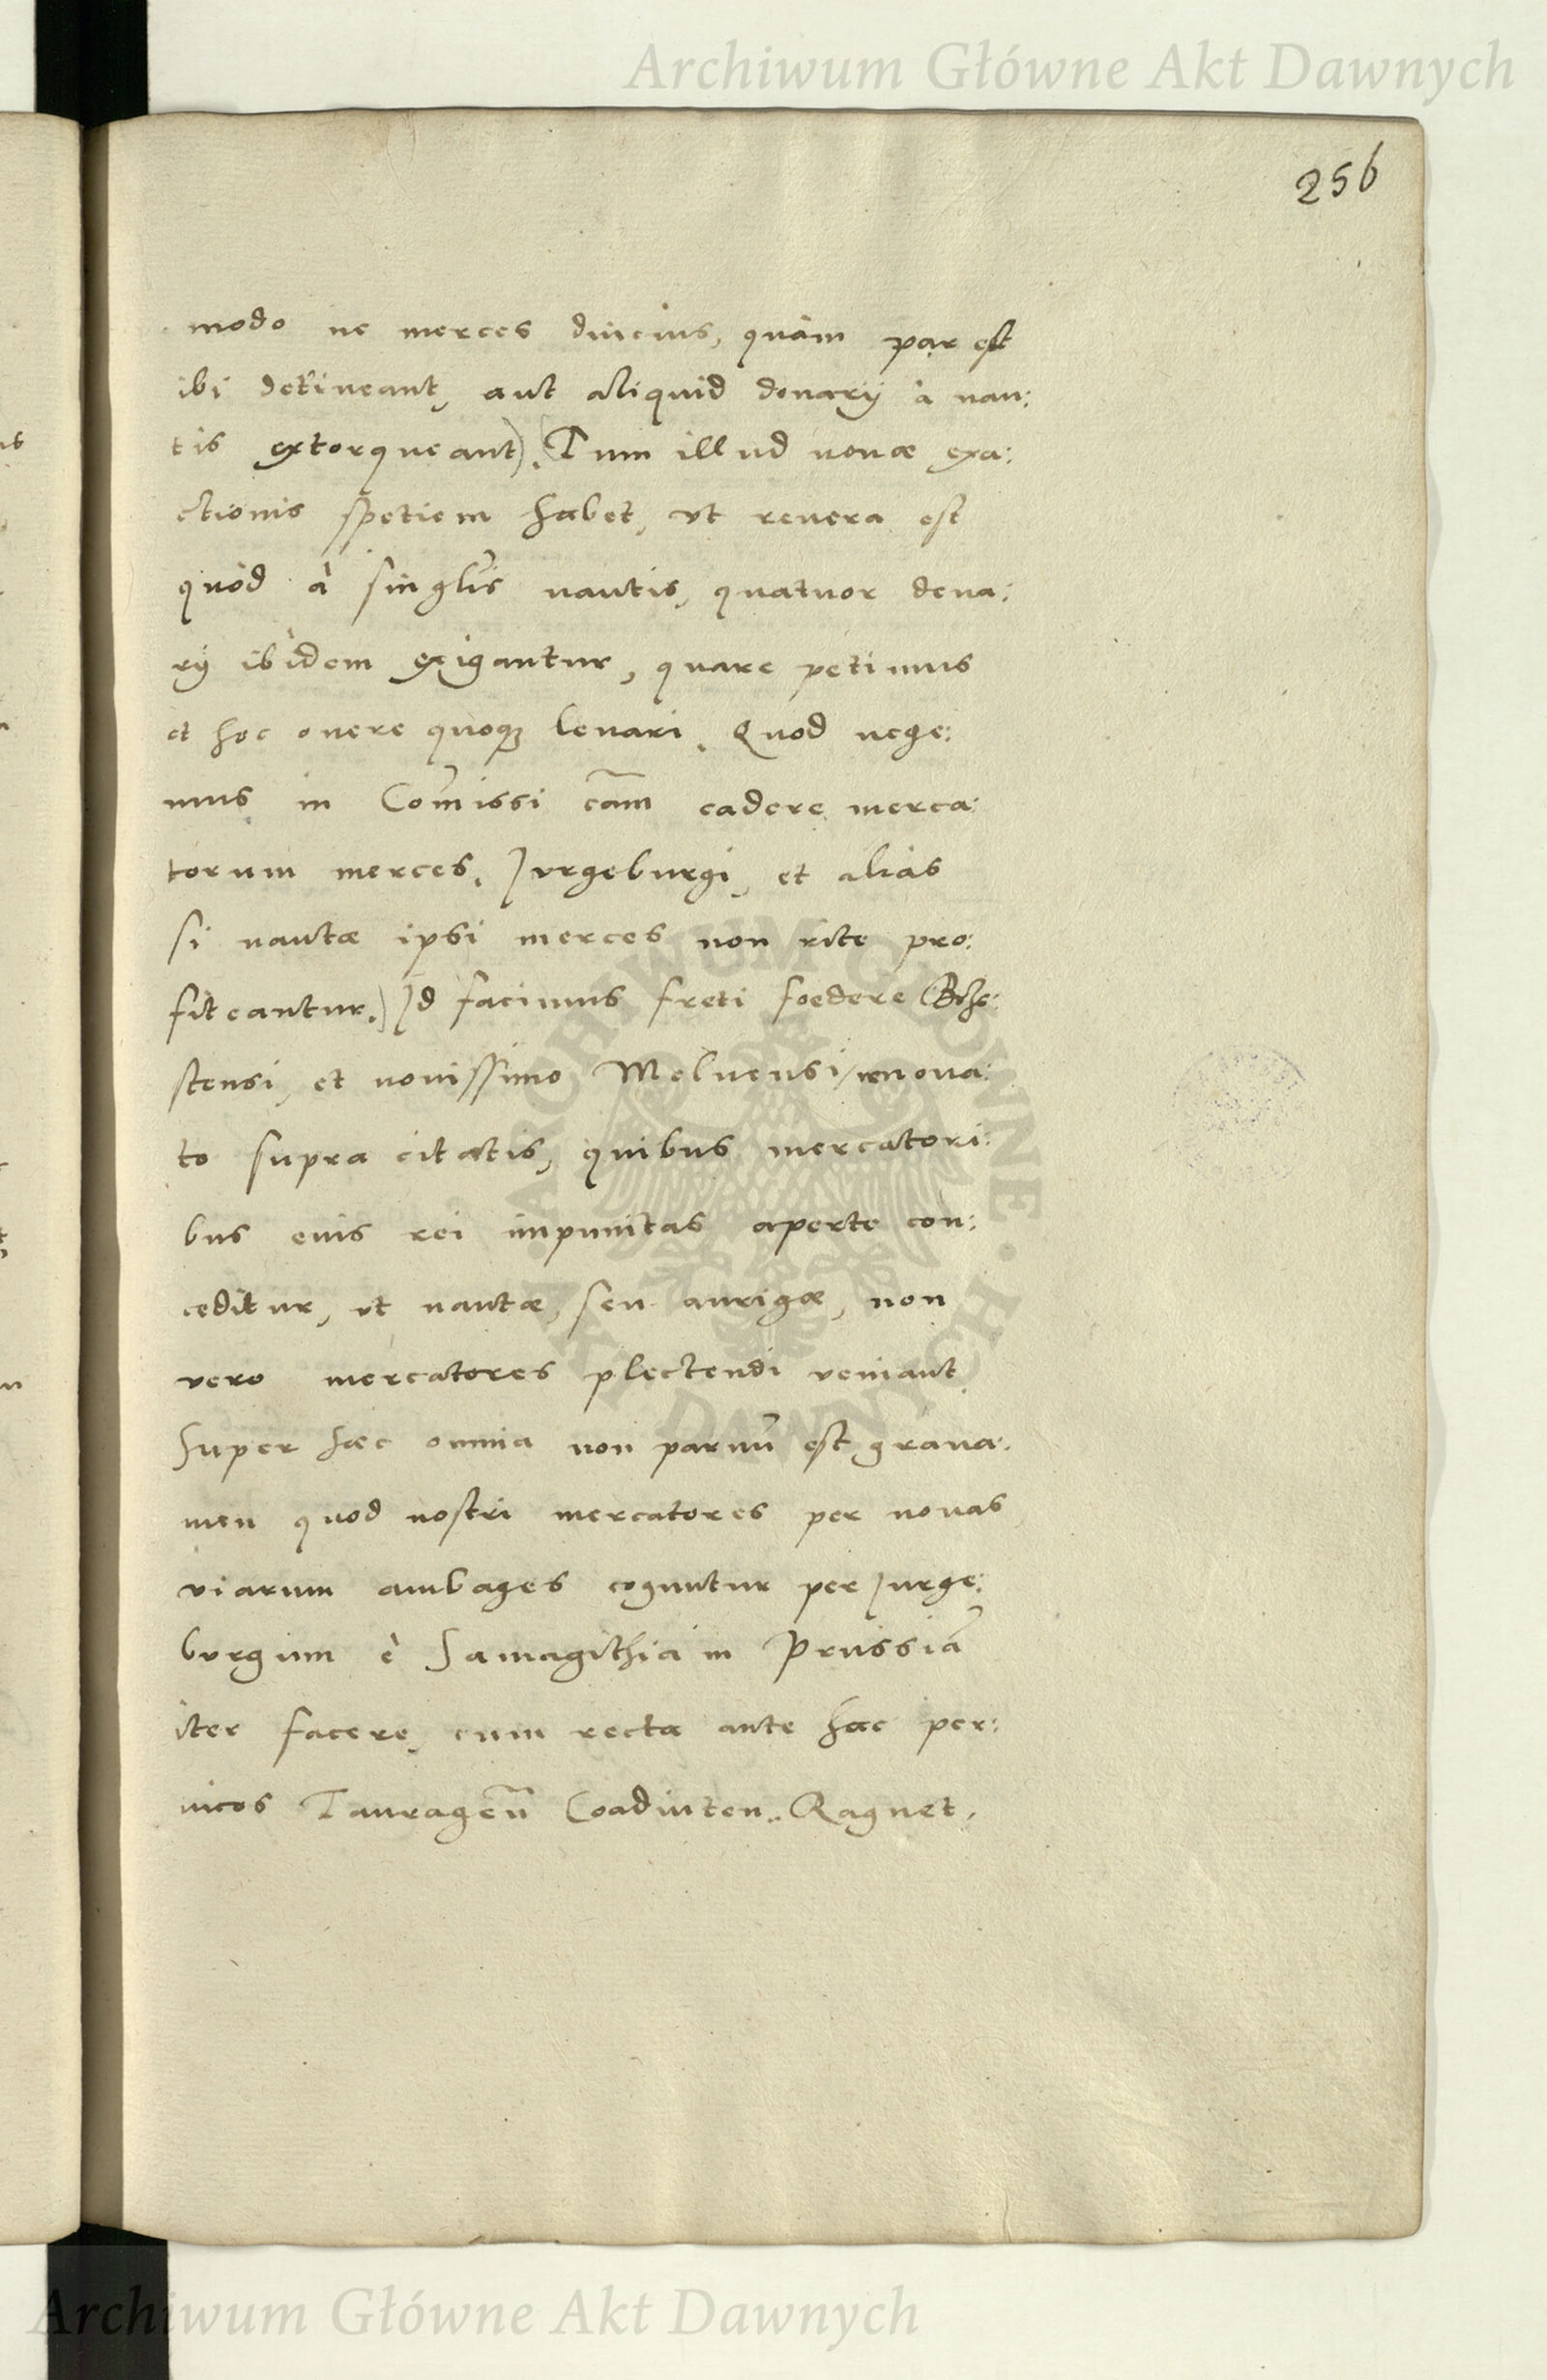 Archiwum Główne Akt Dawnych
256
modo ne merces diucius, quàm par est
ibi detineant, aut aliquid donarÿ à nau:
tis extorqueant). (Tum illud nouæ exa:
ctionis spetiem habet, vt reuera est
quòd à singlis nautis, quatuor dena:
rÿ ibidem exigantur, quare petimus
et hoc onere quoq₃ leuari. Quod nege:
mus in Com̄issi cãm cadere merca:
torum merces. Jurgeburgi, et aliàs
si nautæ ipsi merces non rite pro:
fiteantur.) Jd facimus freti foedere Brze:
stensi, et nouissimo Melnensi renoua:
to supra citatis, quibus mercatori:
bus eius rei impunitas aperte con:
ceditur, vt nautæ, seu aurigæ, non
vero mercatores plectendi veniant
Super hæc omnia non paruũ est graua:
men quod nostri mercatores per nouas
viarum ambages coguntur per Jurge:
burgum è Samagithia in Prussiã
iter facere, cum recta ante hac per:
uicos Taurageñ Coadiuten. Ragnet.
ARCHIWUM GŁÓWNE · AKT DAWNYCH
Archiwum Główne Akt Dawnych